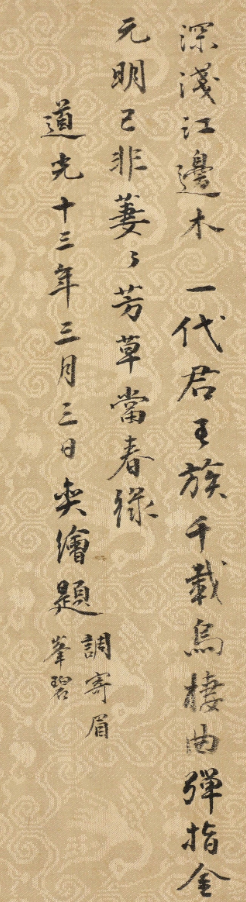 深淺江邊木 一代君王族千載烏棲曲彈指金
元明已非萋〻芳草當春綠
道光十三年三月三日奕繪題
調寄眉
峯碧